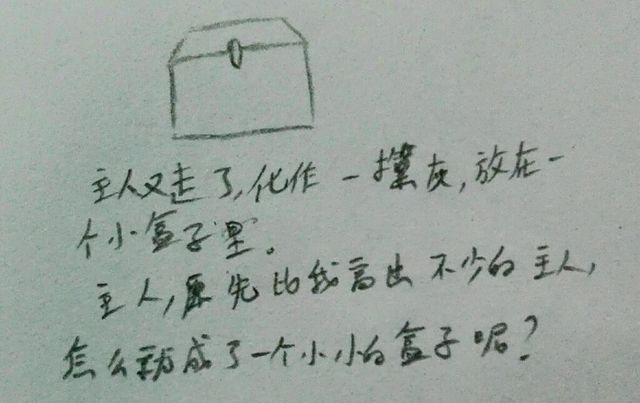 主人又走了,化作一撮灰,放在一
个小盒子里。
主人,原先比我高出不少的主人,
怎么就成了一个小小的盒子呢?